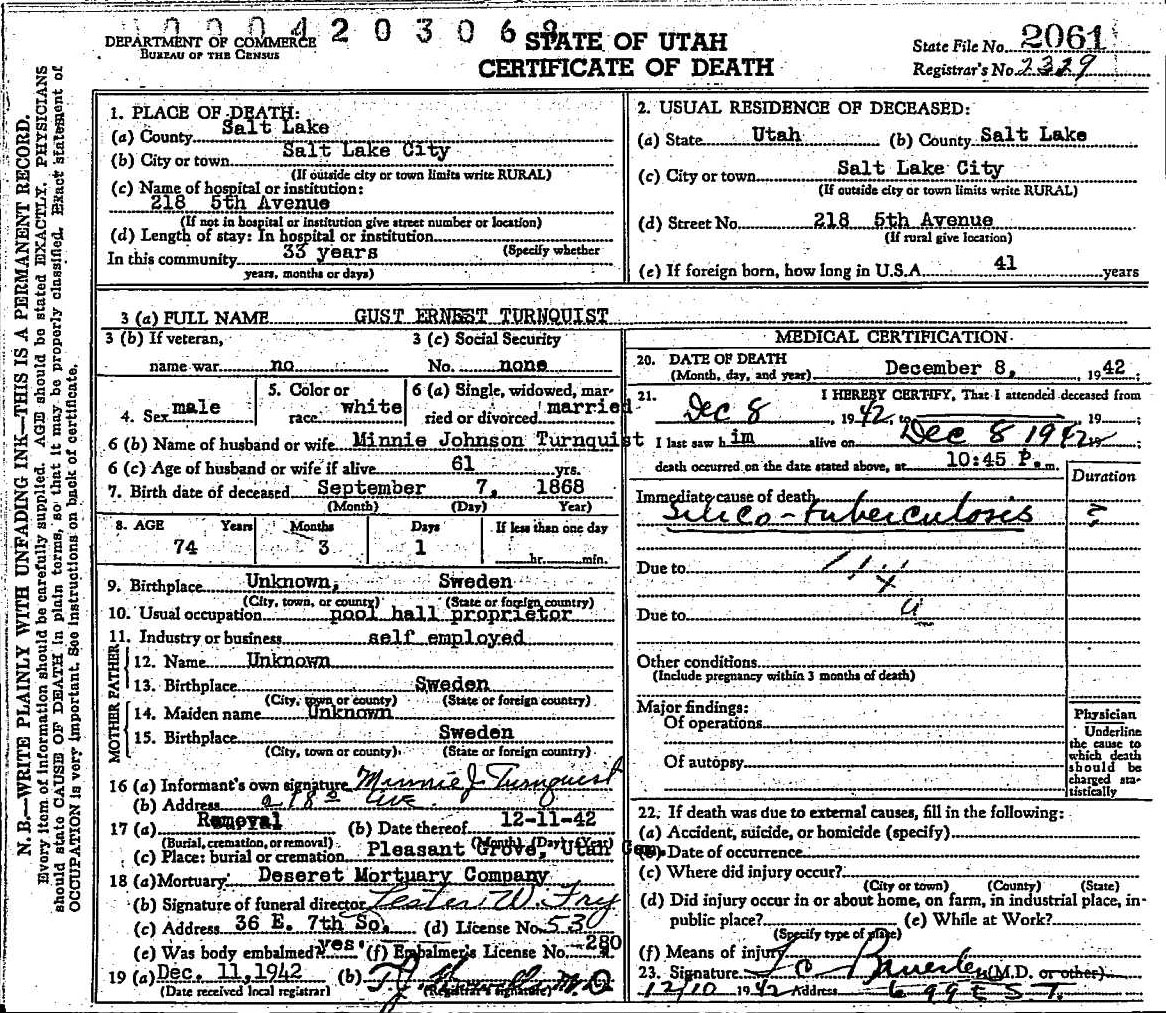 000420306
DEPARTMENT OF COMMERCE
BUREAU OF THE CENSUS
STATE OF UTAH
CERTIFICATE OF DEATH
State File No. 2061
Registrar's No. 2329
N. B.—WRITE PLAINLY WITH UNFADING INK—THIS IS A PERMANENT RECORD.
Every item of information should be carefully supplied. AGE should be stated EXACTLY. PHYSICIANS
should state CAUSE OF DEATH in plain terms, so that it may be properly classified. Exact statement of
OCCUPATION is very important. See instructions on back of certificate.
1. PLACE OF DEATH:
(a) County Salt Lake
(b) City or town Salt Lake City
(If outside city or town limits write RURAL)
(c) Name of hospital or institution:
218 5th Avenue
(If not in hospital or institution give street number or location)
(d) Length of stay: In hospital or institution
In this community 33 years (Specify whether
years, months or days)
2. USUAL RESIDENCE OF DECEASED:
(a) State Utah (b) County Salt Lake
(c) City or town Salt Lake City
(If outside city or town limits write RURAL)
(d) Street No. 218 5th Avenue
(If rural give location)
(e) If foreign born, how long in U.S.A. 41 years
3 (a) FULL NAME GUST ERNEST TURNQUIST
3 (b) If veteran, 3 (c) Social Security
name war no No. none
4. Sex male 5. Color or race white 6 (a) Single, widowed, married or divorced married
6 (b) Name of husband or wife Minnie Johnson Turnquist
6 (c) Age of husband or wife if alive 61 yrs.
7. Birth date of deceased September 7, 1868
(Month) (Day) Year)
8. AGE Years Months Days If less than one day
74 3 1 hr. min.
9. Birthplace Unknown, Sweden
(City, town, or county) (State or foreign country)
10. Usual occupation pool hall proprietor
11. Industry or business self employed
FATHER
12. Name Unknown
13. Birthplace Sweden
(City, town or county) (State or foreign country)
MOTHER
14. Maiden name Unknown
15. Birthplace Sweden
(City, town or county) (State or foreign country)
16 (a) Informant's own signature Minnie J Turnquist
(b) Address 218 Ave.
17 (a) Removal (b) Date thereof 12-11-42
(Burial, cremation, or removal) (Month) (Day) (Year)
(c) Place: burial or cremation Pleasant Grove, Utah Cem.
18 (a) Mortuary Deseret Mortuary Company
(b) Signature of funeral director Lester W. Fry
(c) Address 36 E. 7th So. (d) License No. 530
(e) Was body embalmed? yes. (f) Embalmer's License No. 280
19 (a) Dec. 11, 1942 (b) M.D
(Date received local registrar) (Registrar's signature)
MEDICAL CERTIFICATION
20. DATE OF DEATH
(Month, day, and year) December 8, 1942;
21. I HEREBY CERTIFY, That I attended deceased from
Dec 8 1942, to 19 ;
I last saw him alive on Dec 8 1942 19;
death occurred on the date stated above, at 10:45 P.m.
Duration
Immediate cause of death
Silico-tuberculosis ?
Due to
Due to
Other conditions
(Include pregnancy within 3 months of death)
Major findings:
Of operations
Of autopsy
Physician
Underline
the cause to
which death
should be
charged sta-
tistically
22. If death was due to external causes, fill in the following:
(a) Accident, suicide, or homicide (specify)
(b) Date of occurrence
(c) Where did injury occur?
(City or town) (County) (State)
(d) Did injury occur in or about home, on farm, in industrial place, in-
public place? (e) While at Work?
(Specify type of place)
(f) Means of injury
23. Signature (M.D. or other)
12/10 1942 Address 699 E S.T.